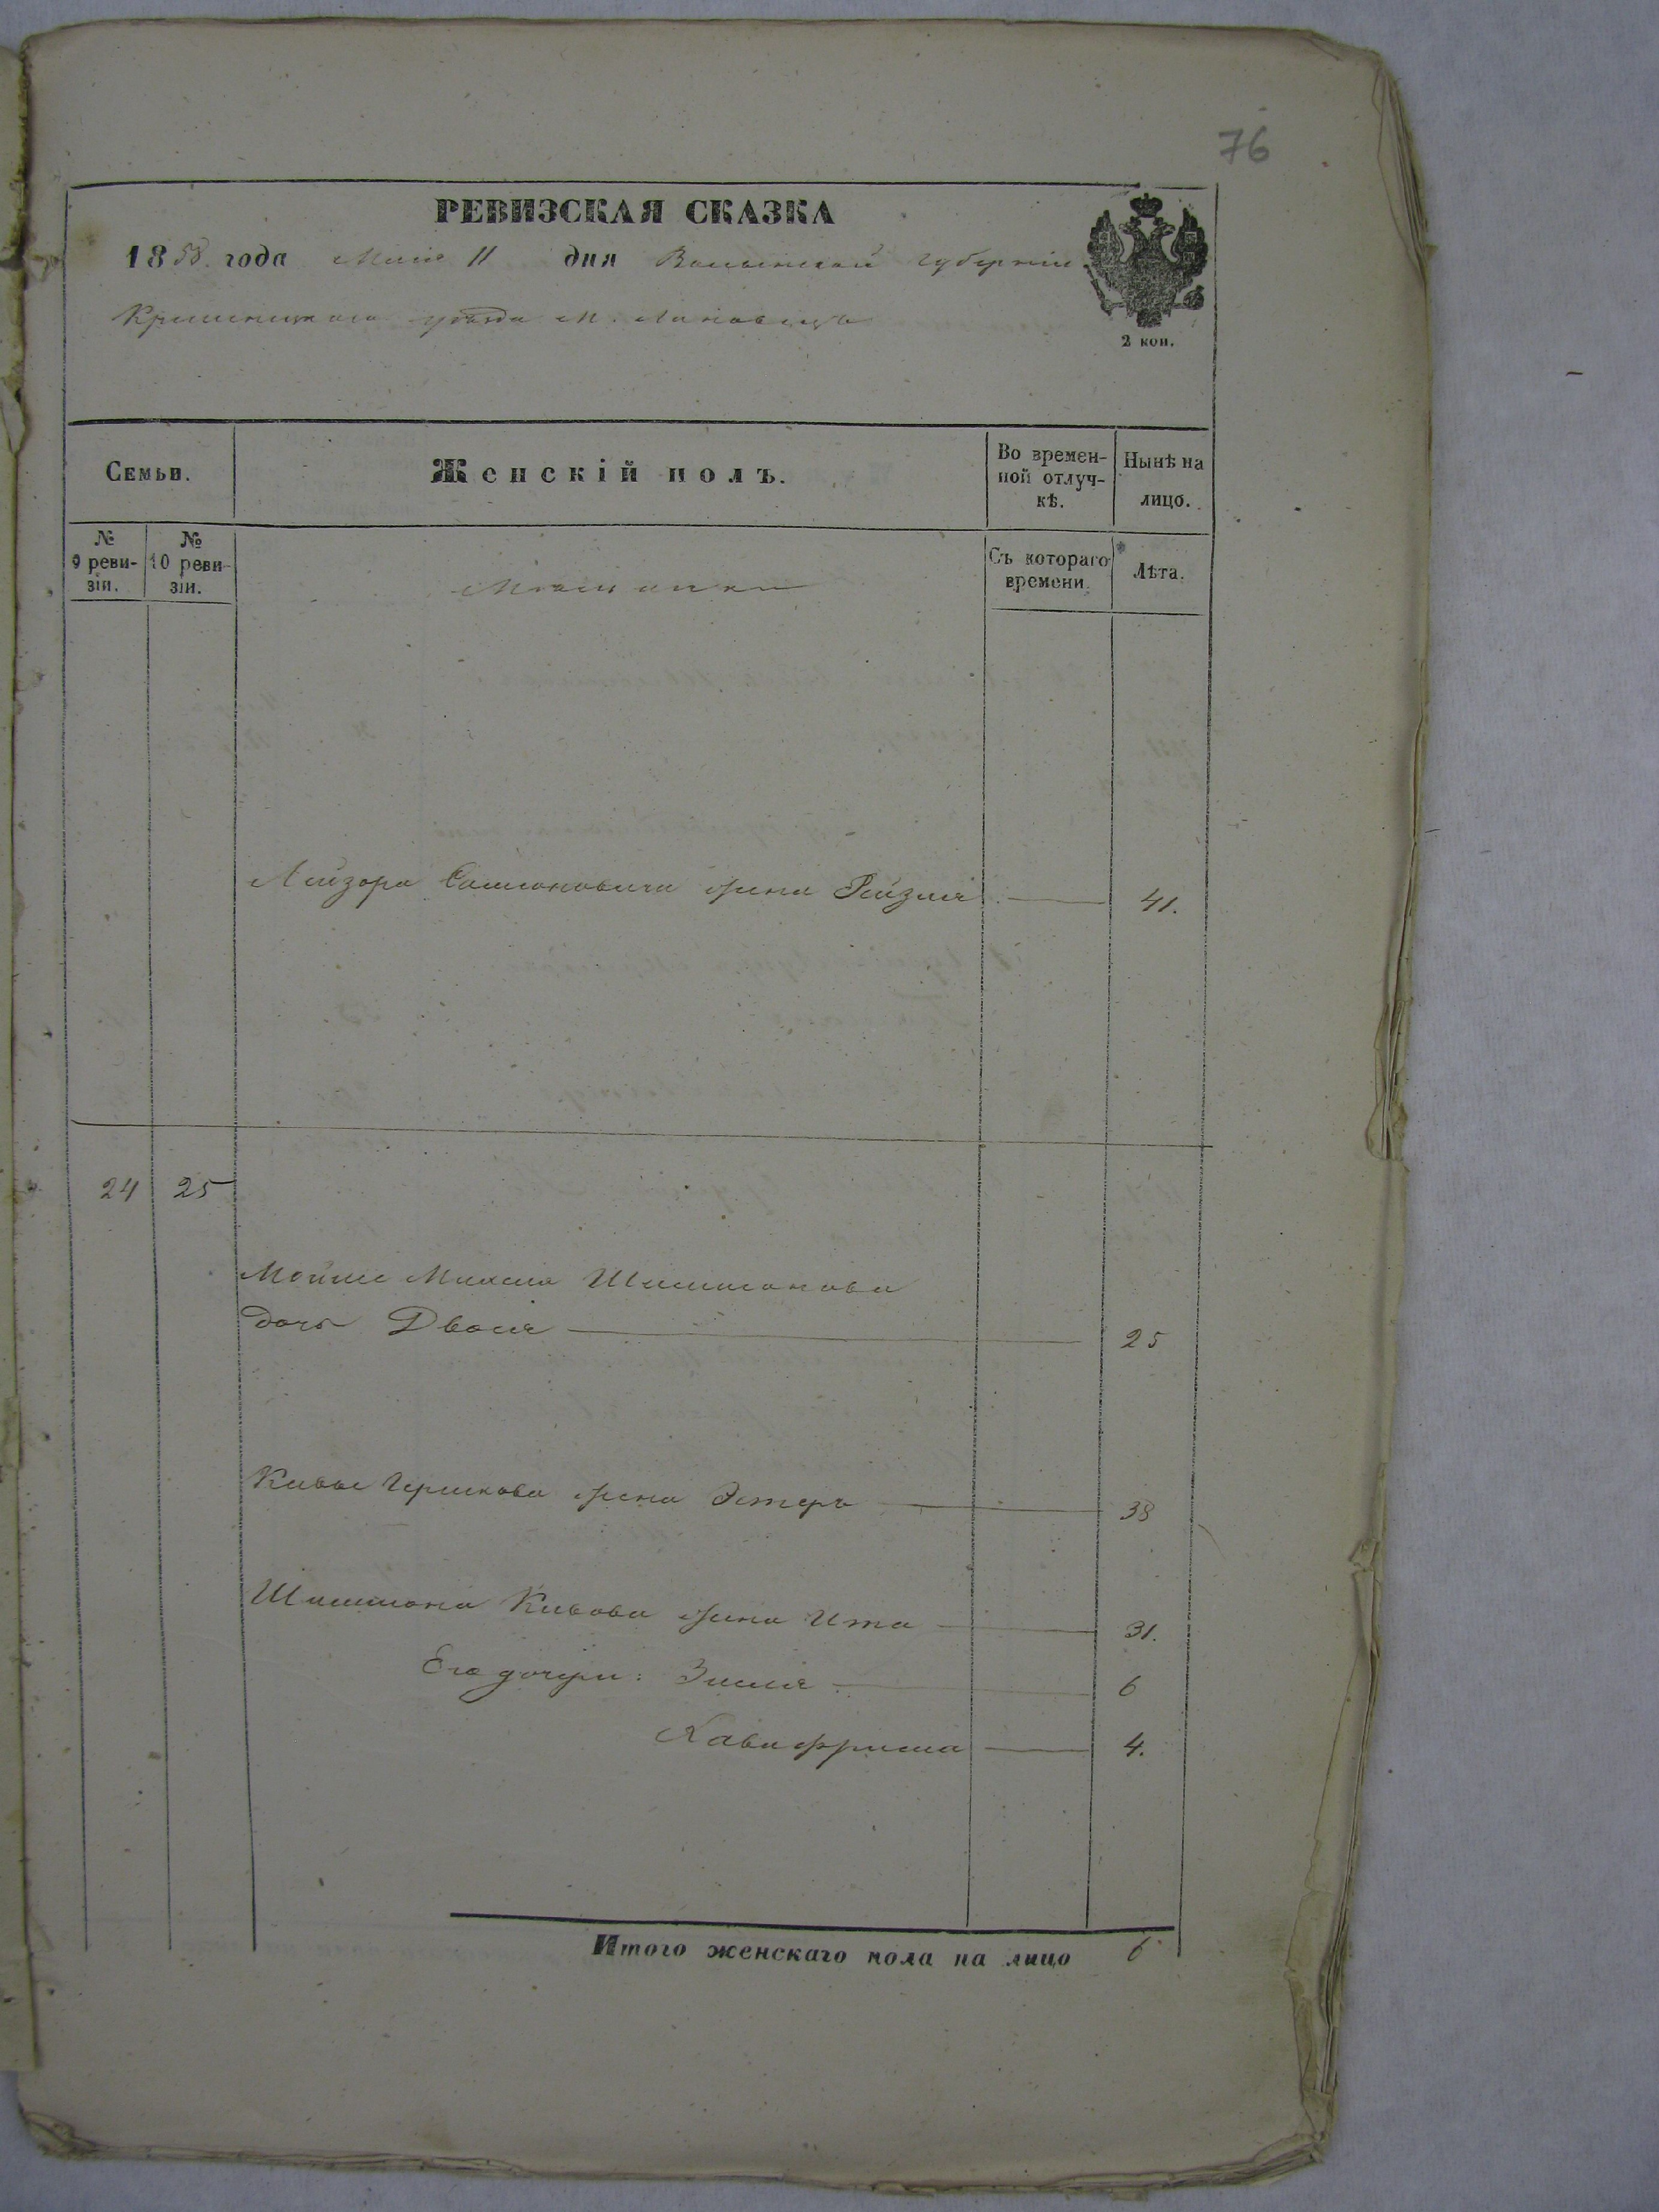 76
РЕВИЗСКАЯ СКАЗКА
1858 года Мая 11 дня Волынской губерніи
Кременецкаго уѣзда м. Лановецъ
2 коп.
Семьи.
Женскій полъ.
Во времен-
ной отлуч-
кѣ.
Нынѣ на
лицо.
№
9 реви-
зіи.
№
10 реви-
зіи.
Мѣщане
Съ котораго
времени.
Лѣта.
Лейзора жена Рейзля 41.
24 25
Мойше Михеля Шлиомонова
дочь Двося 25
Кивы Гершкова жена Эстеръ 38
Кивова жена Ита 31.
Его дочери: 6
Хава фрима 4.
Итого женскаго пола на лицо 6